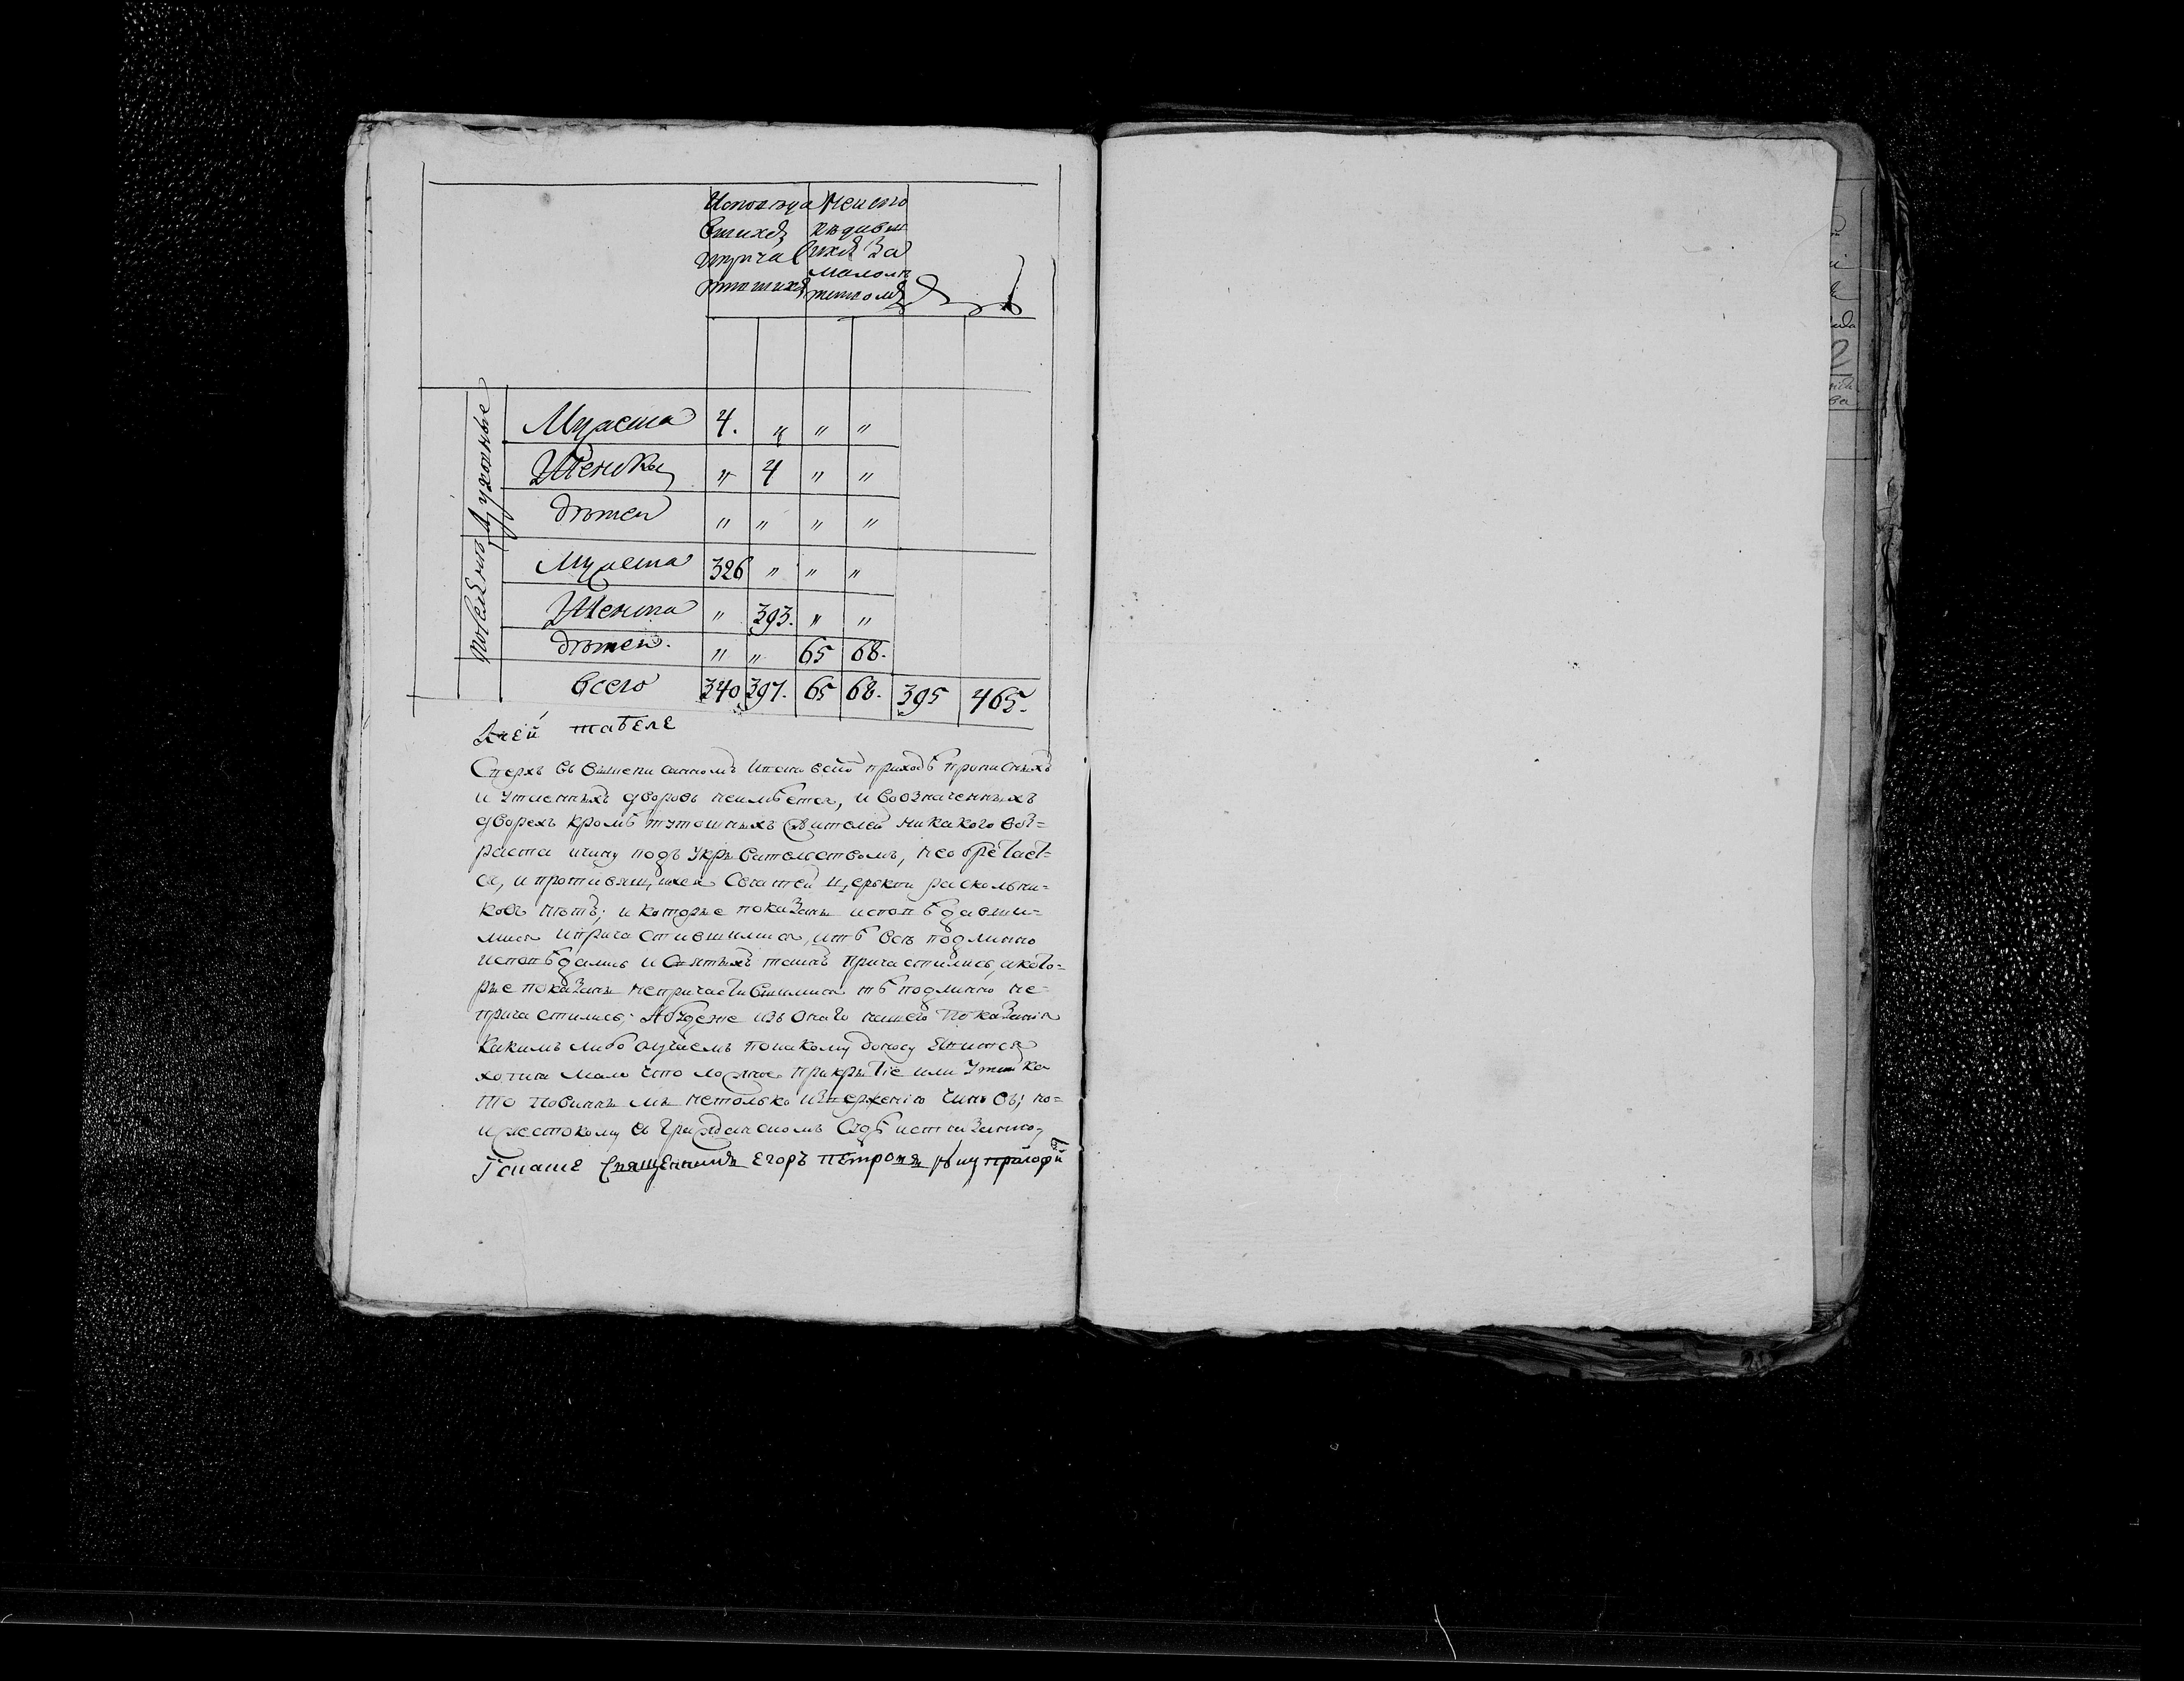 Исповѣда Неиспо
вшихся вѣдавш
ипріча ихся За
стившихся малолѣ
тствомъ
духовные
Мужеска 4. " " "
Женска " 4 " "
дѣтей " " " "
поселянъ
Мужеска 326 " " "
Женска " 393. " "
дѣтей. " " 65 68.
всего 340 397. 65 68. 395 465.
Ксей табеле
Сверхъ въ вышеписанномъ приходѣ прописныхъ
и утаенныхъ дворовъ неимѣетса, и воозначенныхъ
дворехъ кромѣ тутошныхъ жителей никакого воз=
раста ичину подъ укрывательствомъ, необретает=
ся, и противящихся Святей церькви раскольни=
ковъ нѣтъ; и которые показаны исповѣдавши=
мися ипричастившимися, итѣ всѣ подлинно
исповѣдались и Святыхъ таинъ причастились, икото=
рые показаны непричастившимися тѣ подлинно не=
причастились; Абудеже изъ онаго нашего показанія
какимъ либо случаемъ понакому доносу явится
хотя мало что ложное прикрытіе или утайка
то повинны мы нетолько изверженію чиновъ; но=
ижестокому въ Гражданскомъ Судѣ истязанию
Ксимъ Священникъ Егоръ Петровъ руку приложи